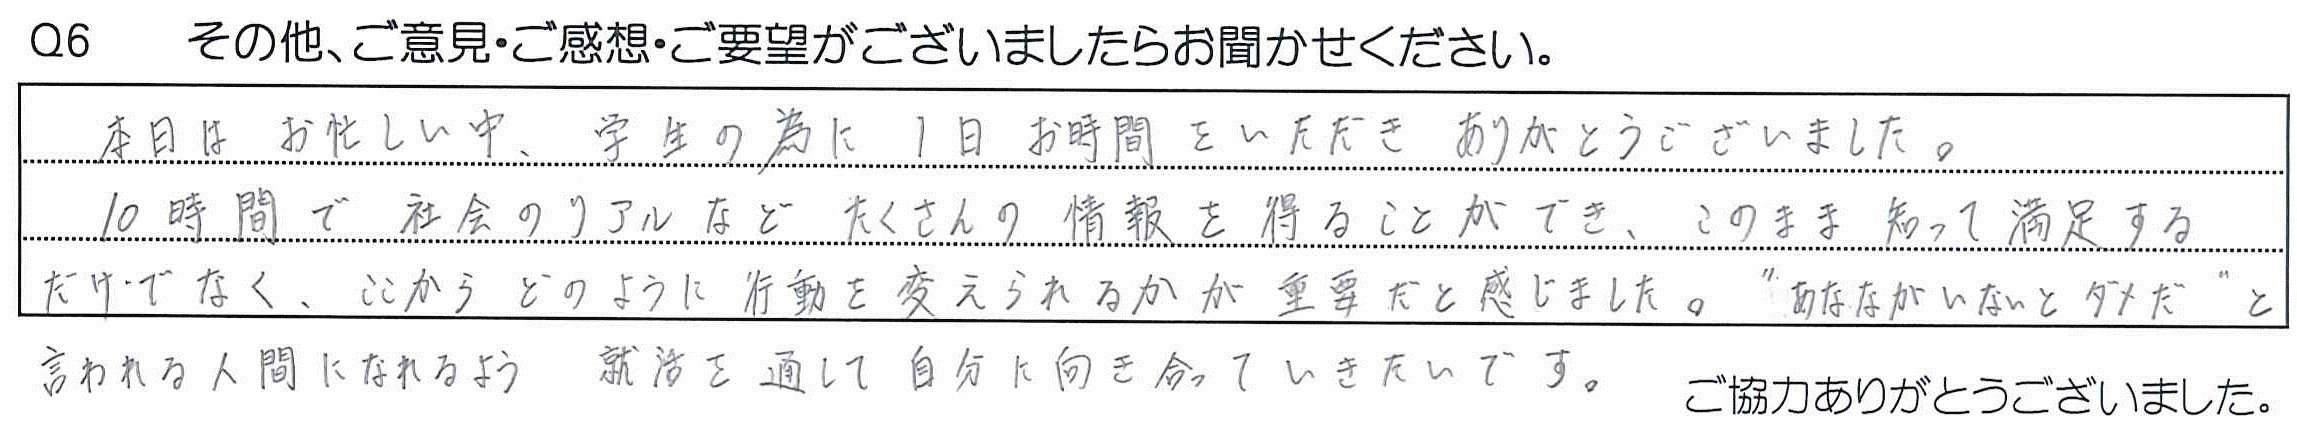 Q6 その他、ご意見・ご感想・ご要望がございましたらお聞かせください。
本日は お忙しい中、学生の為に 1日 お時間をいただき ありがとうございました。
10時間で 社会のリアルなど たくさんの 情報を得ることができ、このまま 知って満足する
だけでなく、ここから どのように 行動を変えられるかが 重要だと感じました。"あなながいないとダメだ"と
言われる人間になれるよう 就活を通して自分に向き合っていきたいです。
ご協力ありがとうございました。